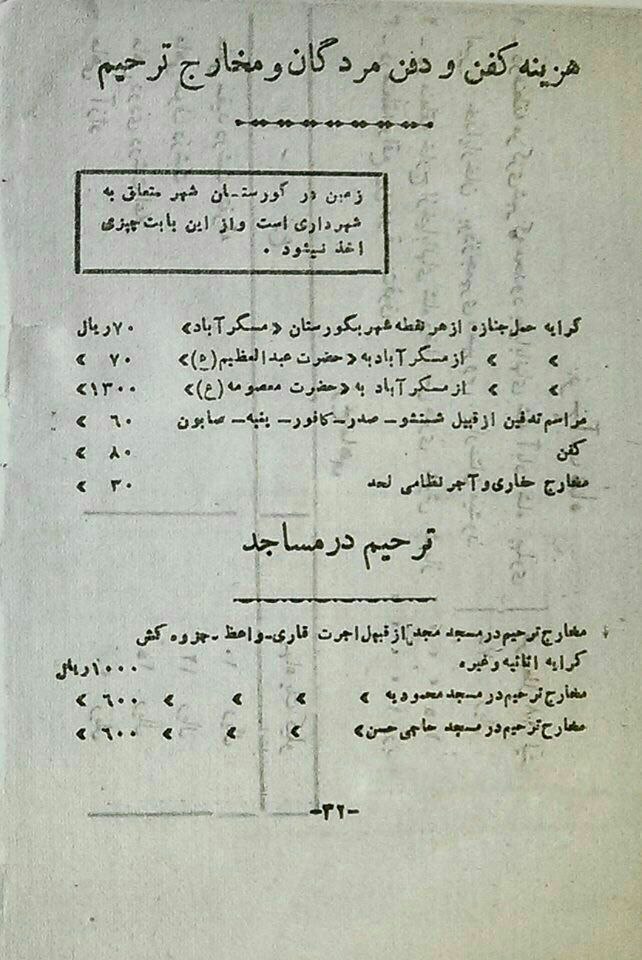 هزینه کفن و دفن مردگان و مخارج ترحیم
زمین در گورستان شهر متعلق به
شهرداری است و از این بابت چیزی
اخذ نمیشود .
کرایه حمل جنازه از هر نقطه شهر بگورستان «مسگر آباد» ۷۰ ریال
» » از مسگر آباد به «حضرت عبدالعظیم (ه)» ۷۰ »
» » از مسگر آباد به «حضرت معصومه (ع)» ۱۳۰۰ »
مراسم تدفین از قبیل شستشو - صدر - کافور - پنبه - صابون ۶۰ »
کفن ۸۰ »
مخارج حفاری و آجر نظامی لحد ۳۰ »
ترحیم در مساجد
مخارج ترحیم در مسجد مجد از قبیل اجرت قاری - واعظ - جزوه کش
کرایه اثاثیه و غیره ۱۰۰۰ ریال
مخارج ترحیم در مسجد محمودیه » » » » ۶۰۰ »
مخارج ترحیم در مسجد حاجی حسن » » » » ۶۰۰ »
-۳۲-